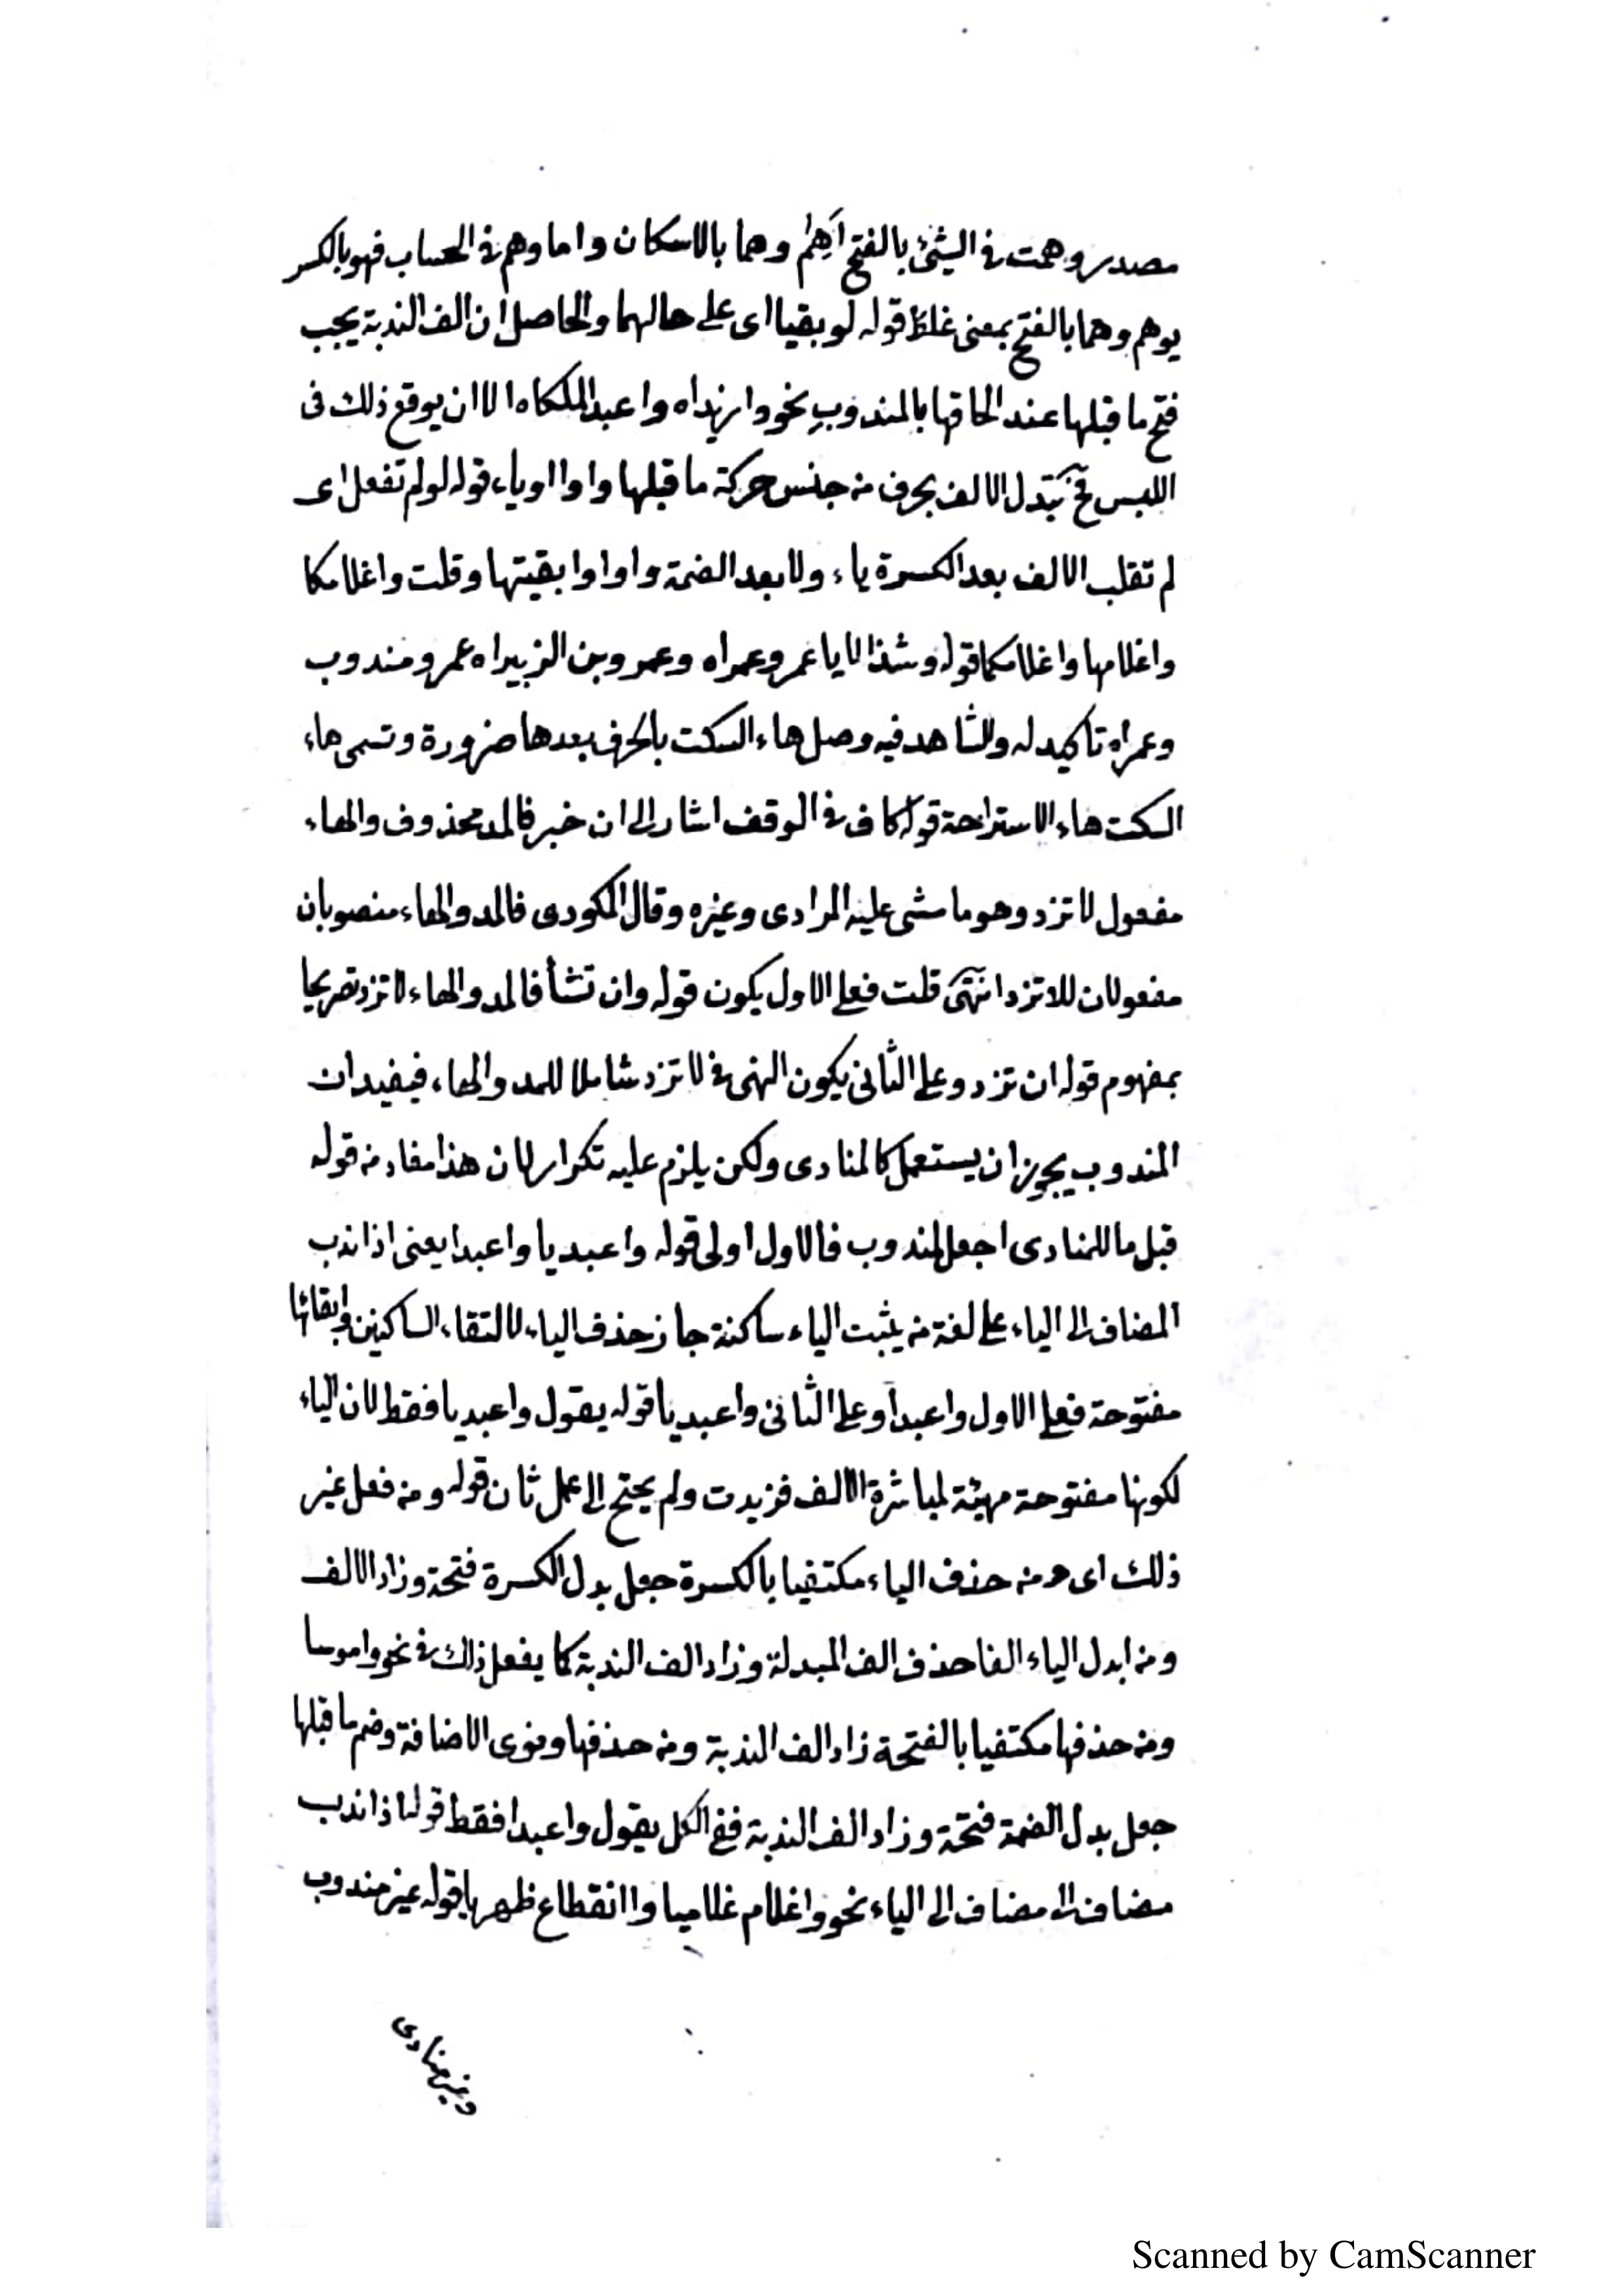 مصدر وهمت في الشيئ بالفتح اَهِمُ وهما بالاسكان واما وهم في الحساب فهو بالكسر
يوهم وهما بالفتح بمعنى غلط قوله لو بقيا اى على حالهما والحاصل ان الف الندبة يجب
فتح ما قبلها عند الحاقها بالمندوب نحو وا زيداه وا عبد الملكاه الا ان يوقع ذلك فى
اللبس فح تبدل الالف بحرف من جنس حركة ما قبلها واوا او ياء قوله لو لم تفعل اى
لم تقلب الالف بعد الكسرة ياء ولا بعد الضمة واوا وابقيتها وقلت واغلامكا
واغلامها واغلامكما قوله وشذ الا يا عمرو عمراه وعمرو بن الزبيراه عمرو مندوب
وعمراه تاكيد له والشاهد فيه وصل هاء السكت بالحرف بعدها ضرورة وتسمى هاء
السكت هاء الاستراحة قوله كاف في الوقف اشار الى ان خبر فالمد محذوف والهاء
مفعول لا تزد وهو ما مشى عليه المرادى وغيره وقال المكودى فالمد والهاء منصوبان
مفعولان للاتزد انتهى قلت فعلى الاول يكون قوله وان تشأ فالمد والهاء لا تزد تصريحا
بمفهوم قوله ان تزد وعلى الثانى يكون النهى في لا تزد شاملا للمد والهاء فيفيد ان
المندوب يجوز ان يستعمل كالمنادى ولكن يلزم عليه تكرار لان هذا مفاد من قوله
قبل ما للمنادى اجعل لمندوب فالاول اولى قوله واعبديا واعبدا يعنى اذا ندب
المضاف الى الياء على لغة من يثبت الياء ساكنة جاز حذف الياء لالتقاء الساكنين وابقائها
مفتوحة فعلى الاول واعبدا وعلى الثانى واعبديا قوله يقول واعبديا فقط لان الياء
لكونها مفتوحة مهيئة لمباشرة الالف فزيدت ولم يحتج الى عمل ثان قوله ومن فعل غير
ذلك اى ومن حذف الياء مكتفيا بالكسرة جعل بدل الكسرة فتحة وزاد الالف
ومن ابدل الياء الفا حذف الف المبدلة وزاد الف الندبة كما يفعل ذلك في نحو واموسا
ومن حذفها مكتفيا بالفتحة زاد الف الندبة ومن حذفها ونوى الاضافة وضم ما قبلها
جعل بدل الضمة فتحة وزاد الف الندبة ففى الكل يقول واعبدا فقط قوله اذا ندب
مضاف الى مضاف الى الياء نحو واغلام غلاميا وا انقطاع ظهريا قوله غير مندوب
وغير منادى
Scanned by CamScanner